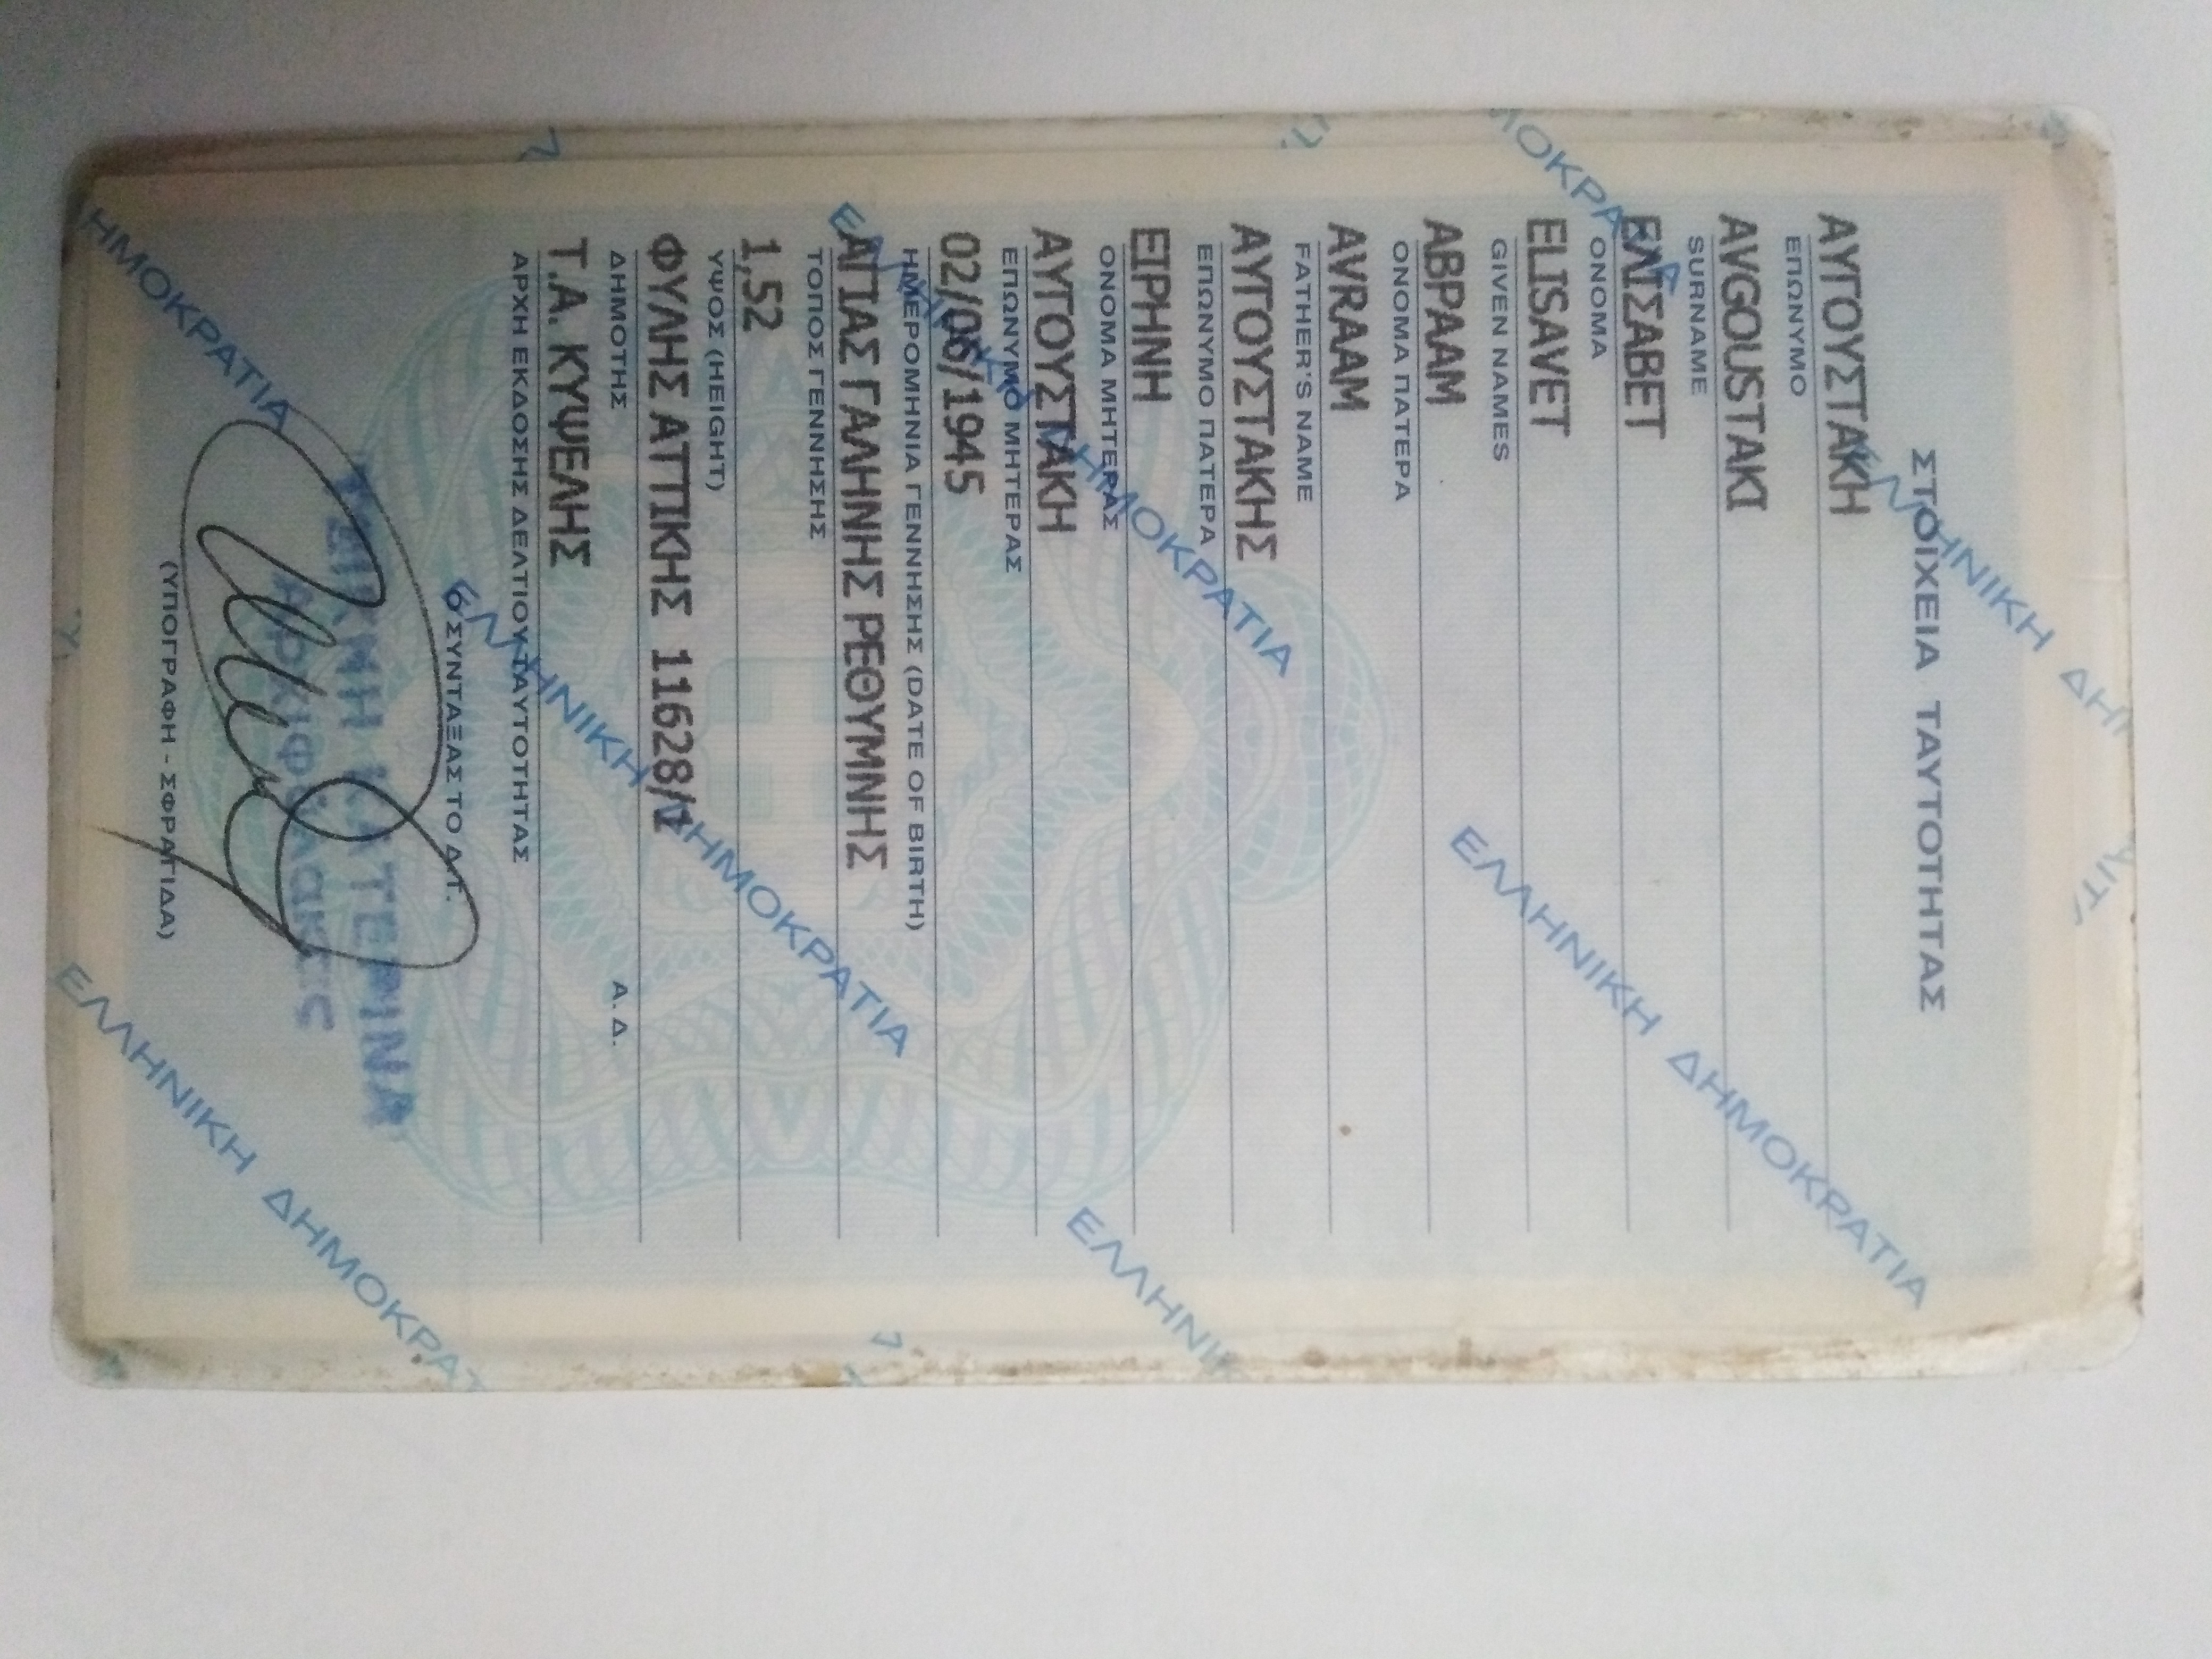 ΣΤΟΙΧΕΙΑ ΤΑΥΤΟΤΗΤΑΣ
ΑΥΓΟΥΣΤΑΚΗ
ΕΠΩΝΥΜΟ
AVGOUSTAKI
SURNAME
ΕΛΙΣΑΒΕΤ
ΟΝΟΜΑ
ELISAVET
GIVEN NAMES
ΑΒΡΑΑΜ
ΟΝΟΜΑ ΠΑΤΕΡΑ
AVRAAM
FATHER'S NAME
ΑΥΓΟΥΣΤΑΚΗΣ
ΕΠΩΝΥΜΟ ΠΑΤΕΡΑ
ΕΙΡΗΝΗ
ΟΝΟΜΑ ΜΗΤΕΡΑΣ
ΑΥΓΟΥΣΤΑΚΗ
ΕΠΩΝΥΜΟ ΜΗΤΕΡΑΣ
02/06/1945
ΗΜΕΡΟΜΗΝΙΑ ΓΕΝΝΗΣΗΣ (DATE OF BIRTH)
ΑΓΙΑΣ ΓΑΛΗΝΗΣ ΡΕΘΥΜΝΗΣ
ΤΟΠΟΣ ΓΕΝΝΗΣΗΣ
1,52
ΥΨΟΣ (HEIGHT)
ΦΥΛΗΣ ΑΤΤΙΚΗΣ 11628/1
ΔΗΜΟΤΗΣ Α. Δ.
Τ.Α. ΚΥΨΕΛΗΣ
ΑΡΧΗ ΕΚΔΟΣΗΣ ΔΕΛΤΙΟΥ ΤΑΥΤΟΤΗΤΑΣ
Ο ΣΥΝΤΑΞΑΣ ΤΟ Δ.Τ.
ΚΑΤΕΡΙΝΑ
(ΥΠΟΓΡΑΦΗ - ΣΦΡΑΓΙΔΑ)
ΕΛΛΗΝΙΚΗ ΔΗΜΟΚΡΑΤΙΑ
ΕΛΛΗΝΙΚΗ ΔΗΜΟΚΡΑΤΙΑ
ΕΛΛΗΝΙΚΗ ΔΗΜΟΚΡΑΤΙΑ